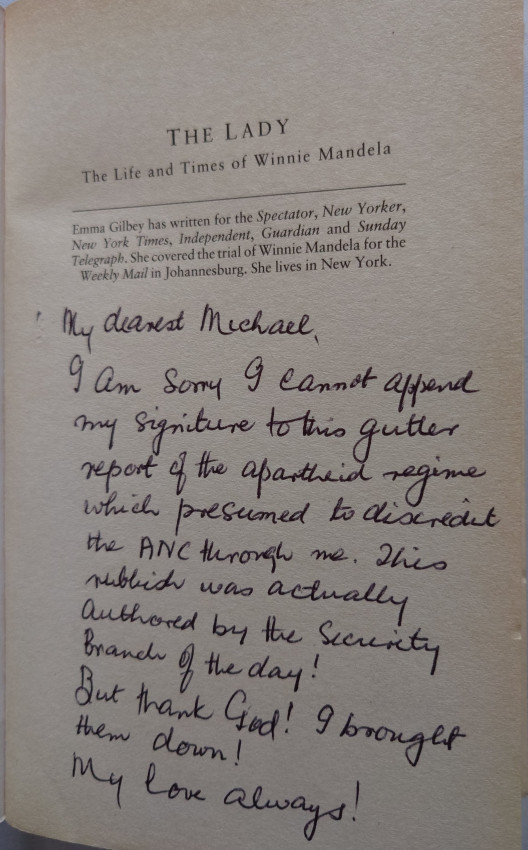 THE LADY
The Life and Times of Winnie Mandela
Emma Gilbey has written for the Spectator, New Yorker,
New York Times, Independent, Guardian and Sunday
Telegraph. She covered the trial of Winnie Mandela for the
Weekly Mail in Johannesburg. She lives in New York.
My dearest Michael,
I am sorry I cannot append
my signiture to this gutter
report of the apartheid regime
which presumed to discredit
the ANC through me. This
rubbish was actually
authored by the Secuirity
Branch of the day!
But thank God! I brought
them down!
My love always!